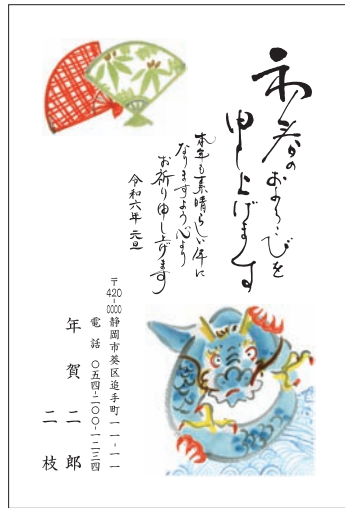 初春のおよろこびを
申し上げます
本年も素晴らしい年に
なりますよう心より
お祈り申し上げます
令和六年 元旦
〒420-0000 静岡市葵区追手町一一-一一
電話 〇五四-二〇〇-一二三四
年賀二郎
二枝